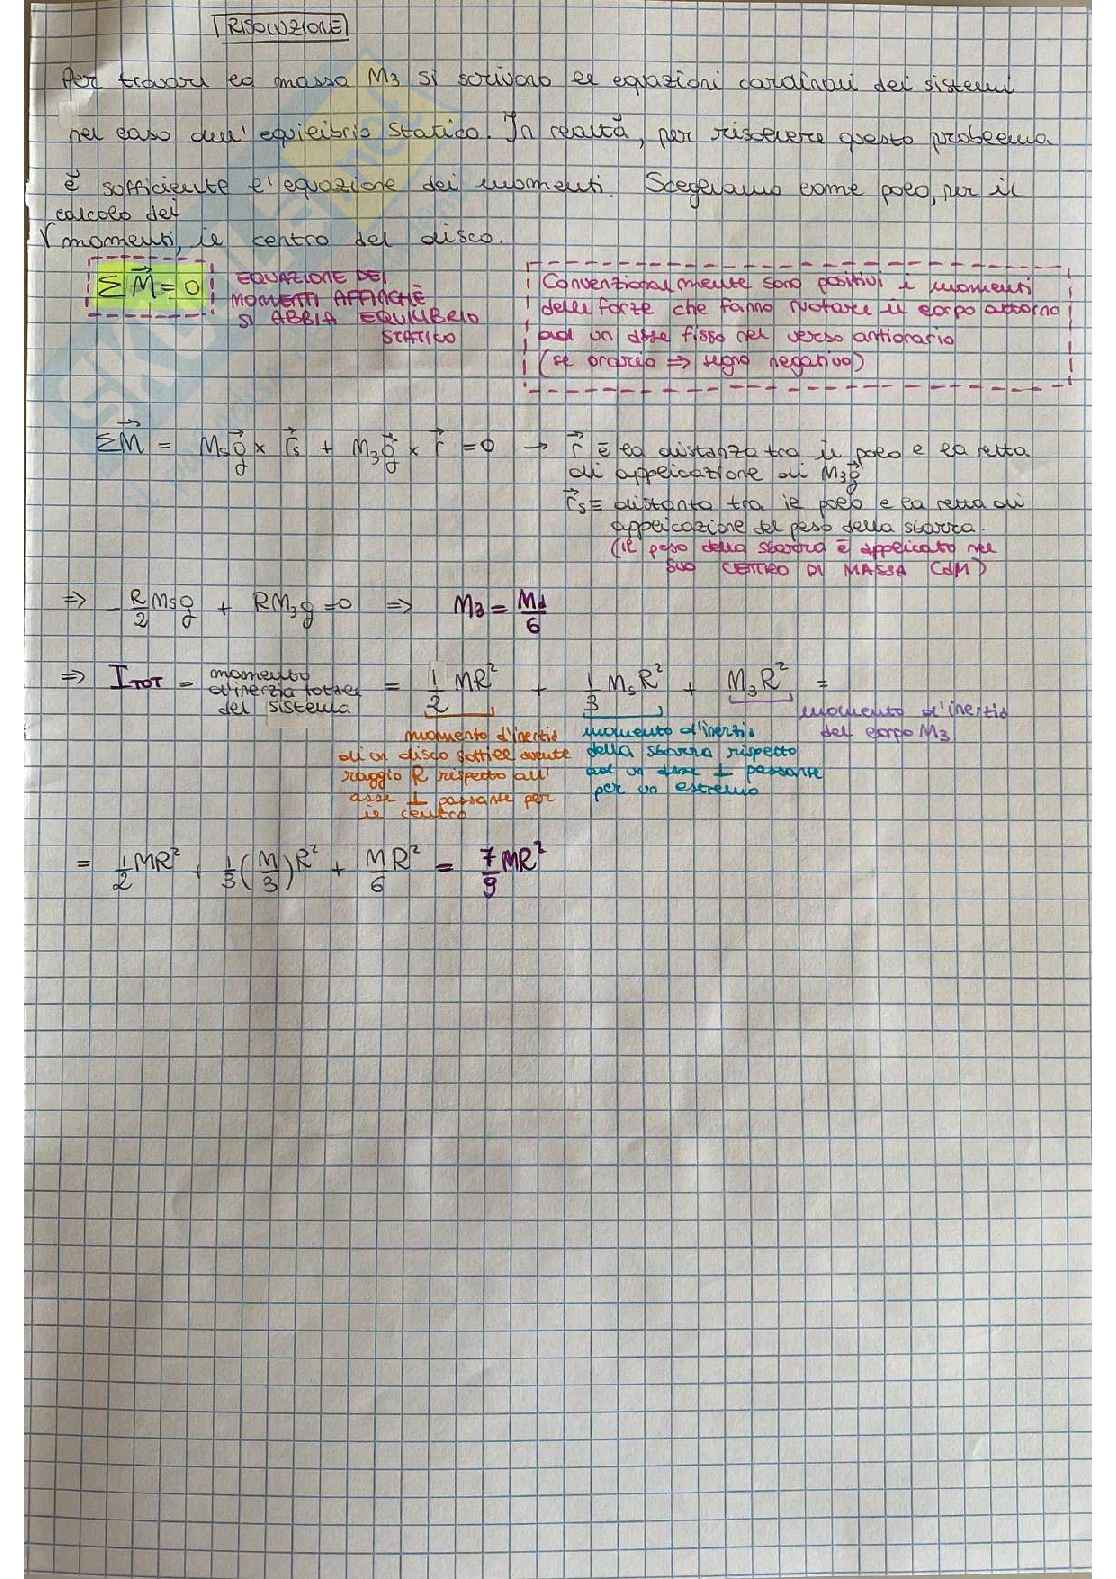 RISOLUZIONE
Per trovare la massa M3 si scrivono le equazioni cardinali dei sistemi
nel caso dell'equilibrio statico. In realtà, per risolvere questo problema
è sufficiente l'equazione dei momenti. Scegliamo come polo, per il
calcolo dei
momenti, il centro del disco.
ΣM⃗ = 0
EQUAZIONE DEI
MOMENTI AFFINCHÉ
SI ABBIA EQUILIBRIO
STATICO
Convenzionalmente sono positivi i momenti
delle forze che fanno ruotare il corpo attorno
ad un asse fisso nel verso antiorario
(se orario ⇒ segno negativo)
ΣM⃗ = Msg⃗ × r⃗s + M3g⃗ × r⃗ = 0 → r⃗ è la distanza tra il polo e la retta
di applicazione di M3g⃗
r⃗s ≡ distanza tra il polo e la retta di
applicazione del peso della sbarra.
(il peso della sbarra è applicato nel
suo CENTRO DI MASSA (CdM)
⇒ - R/2 Msg + RM3g = 0 ⇒ M3 = Md/6
⇒ ITOT = momento d'inerzia totale del sistema = 1/2 MR² + 1/3 MsR² + M3R² =
momento d'inerzia
di un disco sottile avente
raggio R rispetto all'
asse ⊥ passante per
il centro
momento d'inerzia
della sbarra rispetto
ad un asse ⊥ passante
per un estremo
momento d'inerzia
del corpo M3
= 1/2 MR² + 1/3 (M/3)R² + M/6 R² = 7/9 MR²